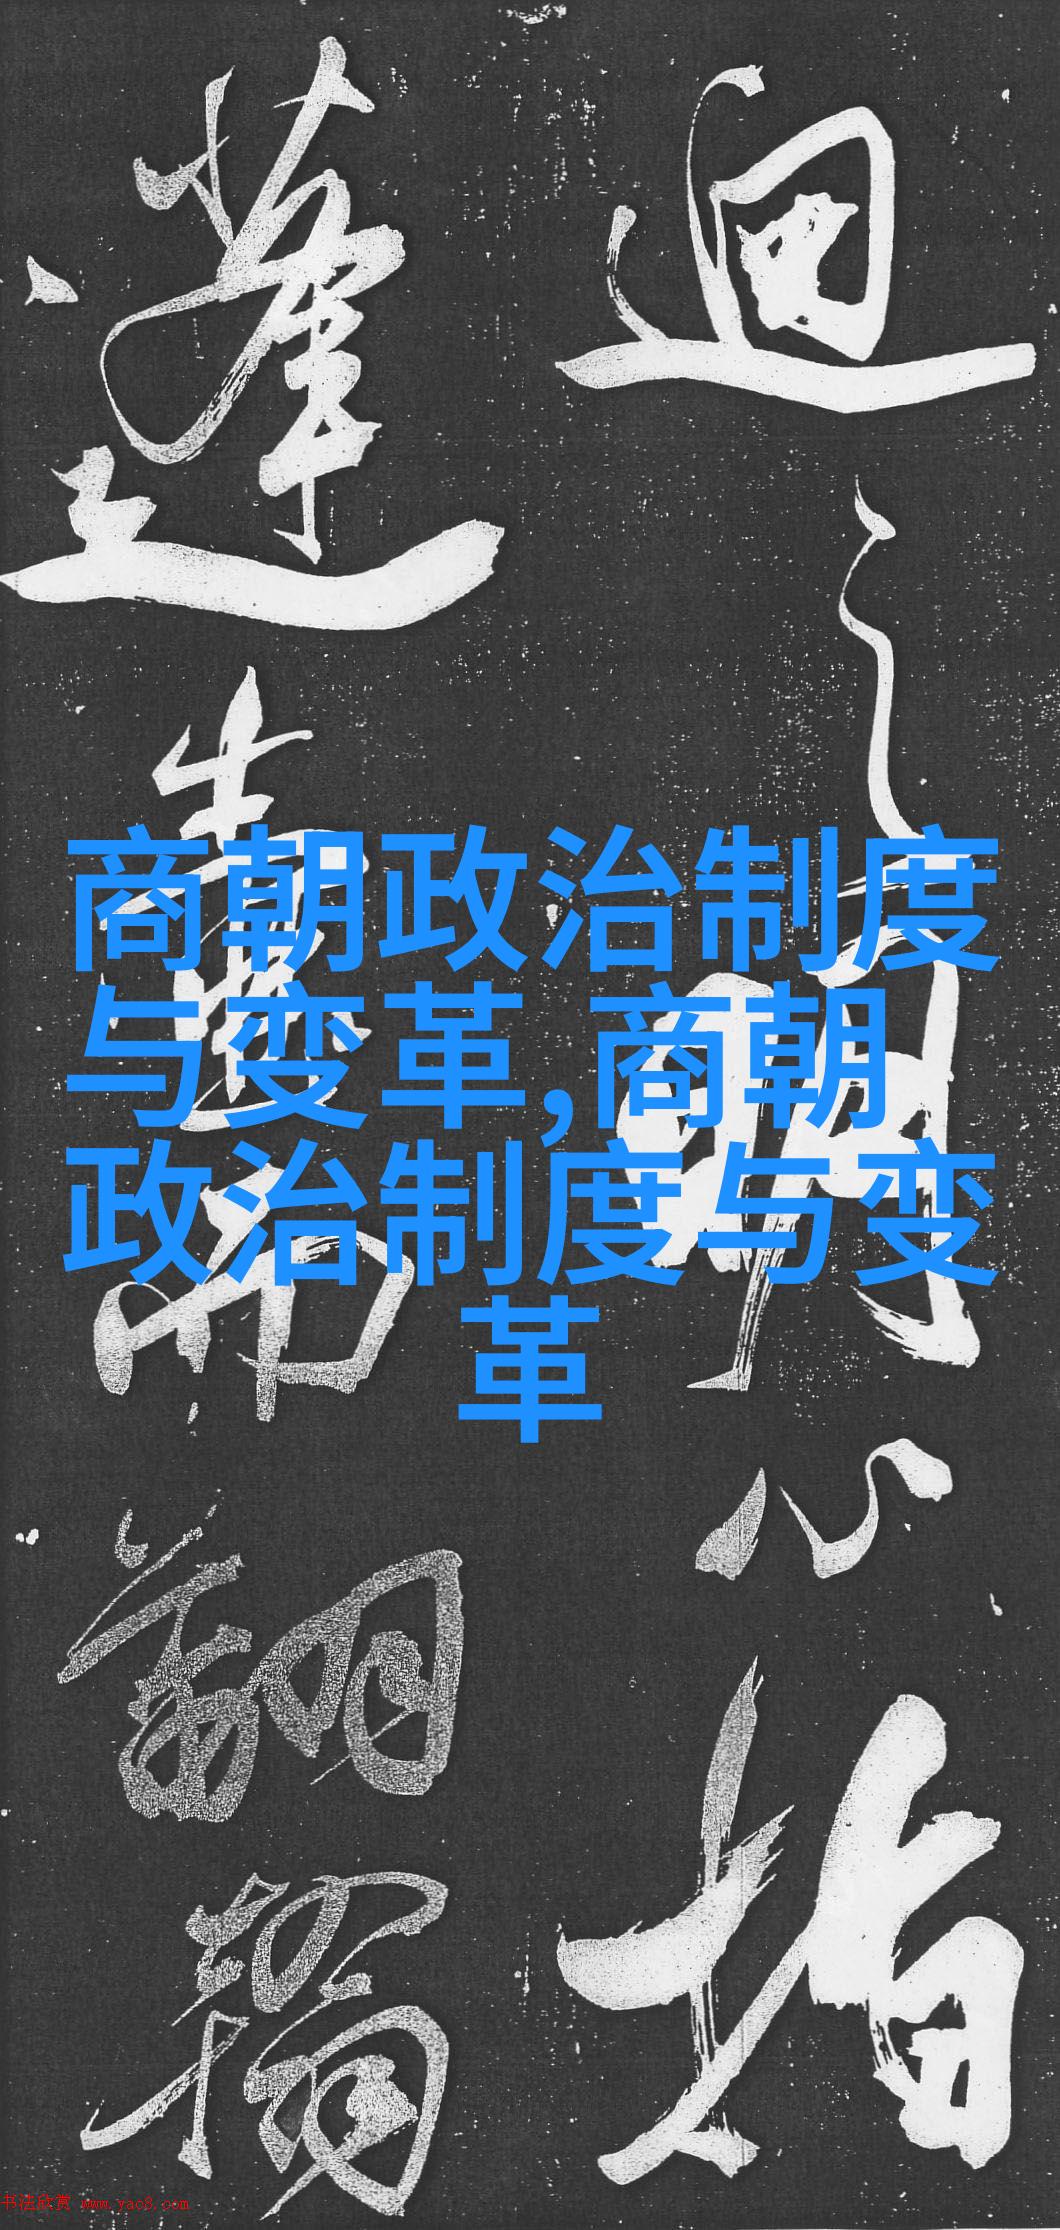 迴之明心指
蓬壺而翻翰
商朝政治制度
与变革,商朝
政治制度与变
革
书法欣赏 www.yao8.com